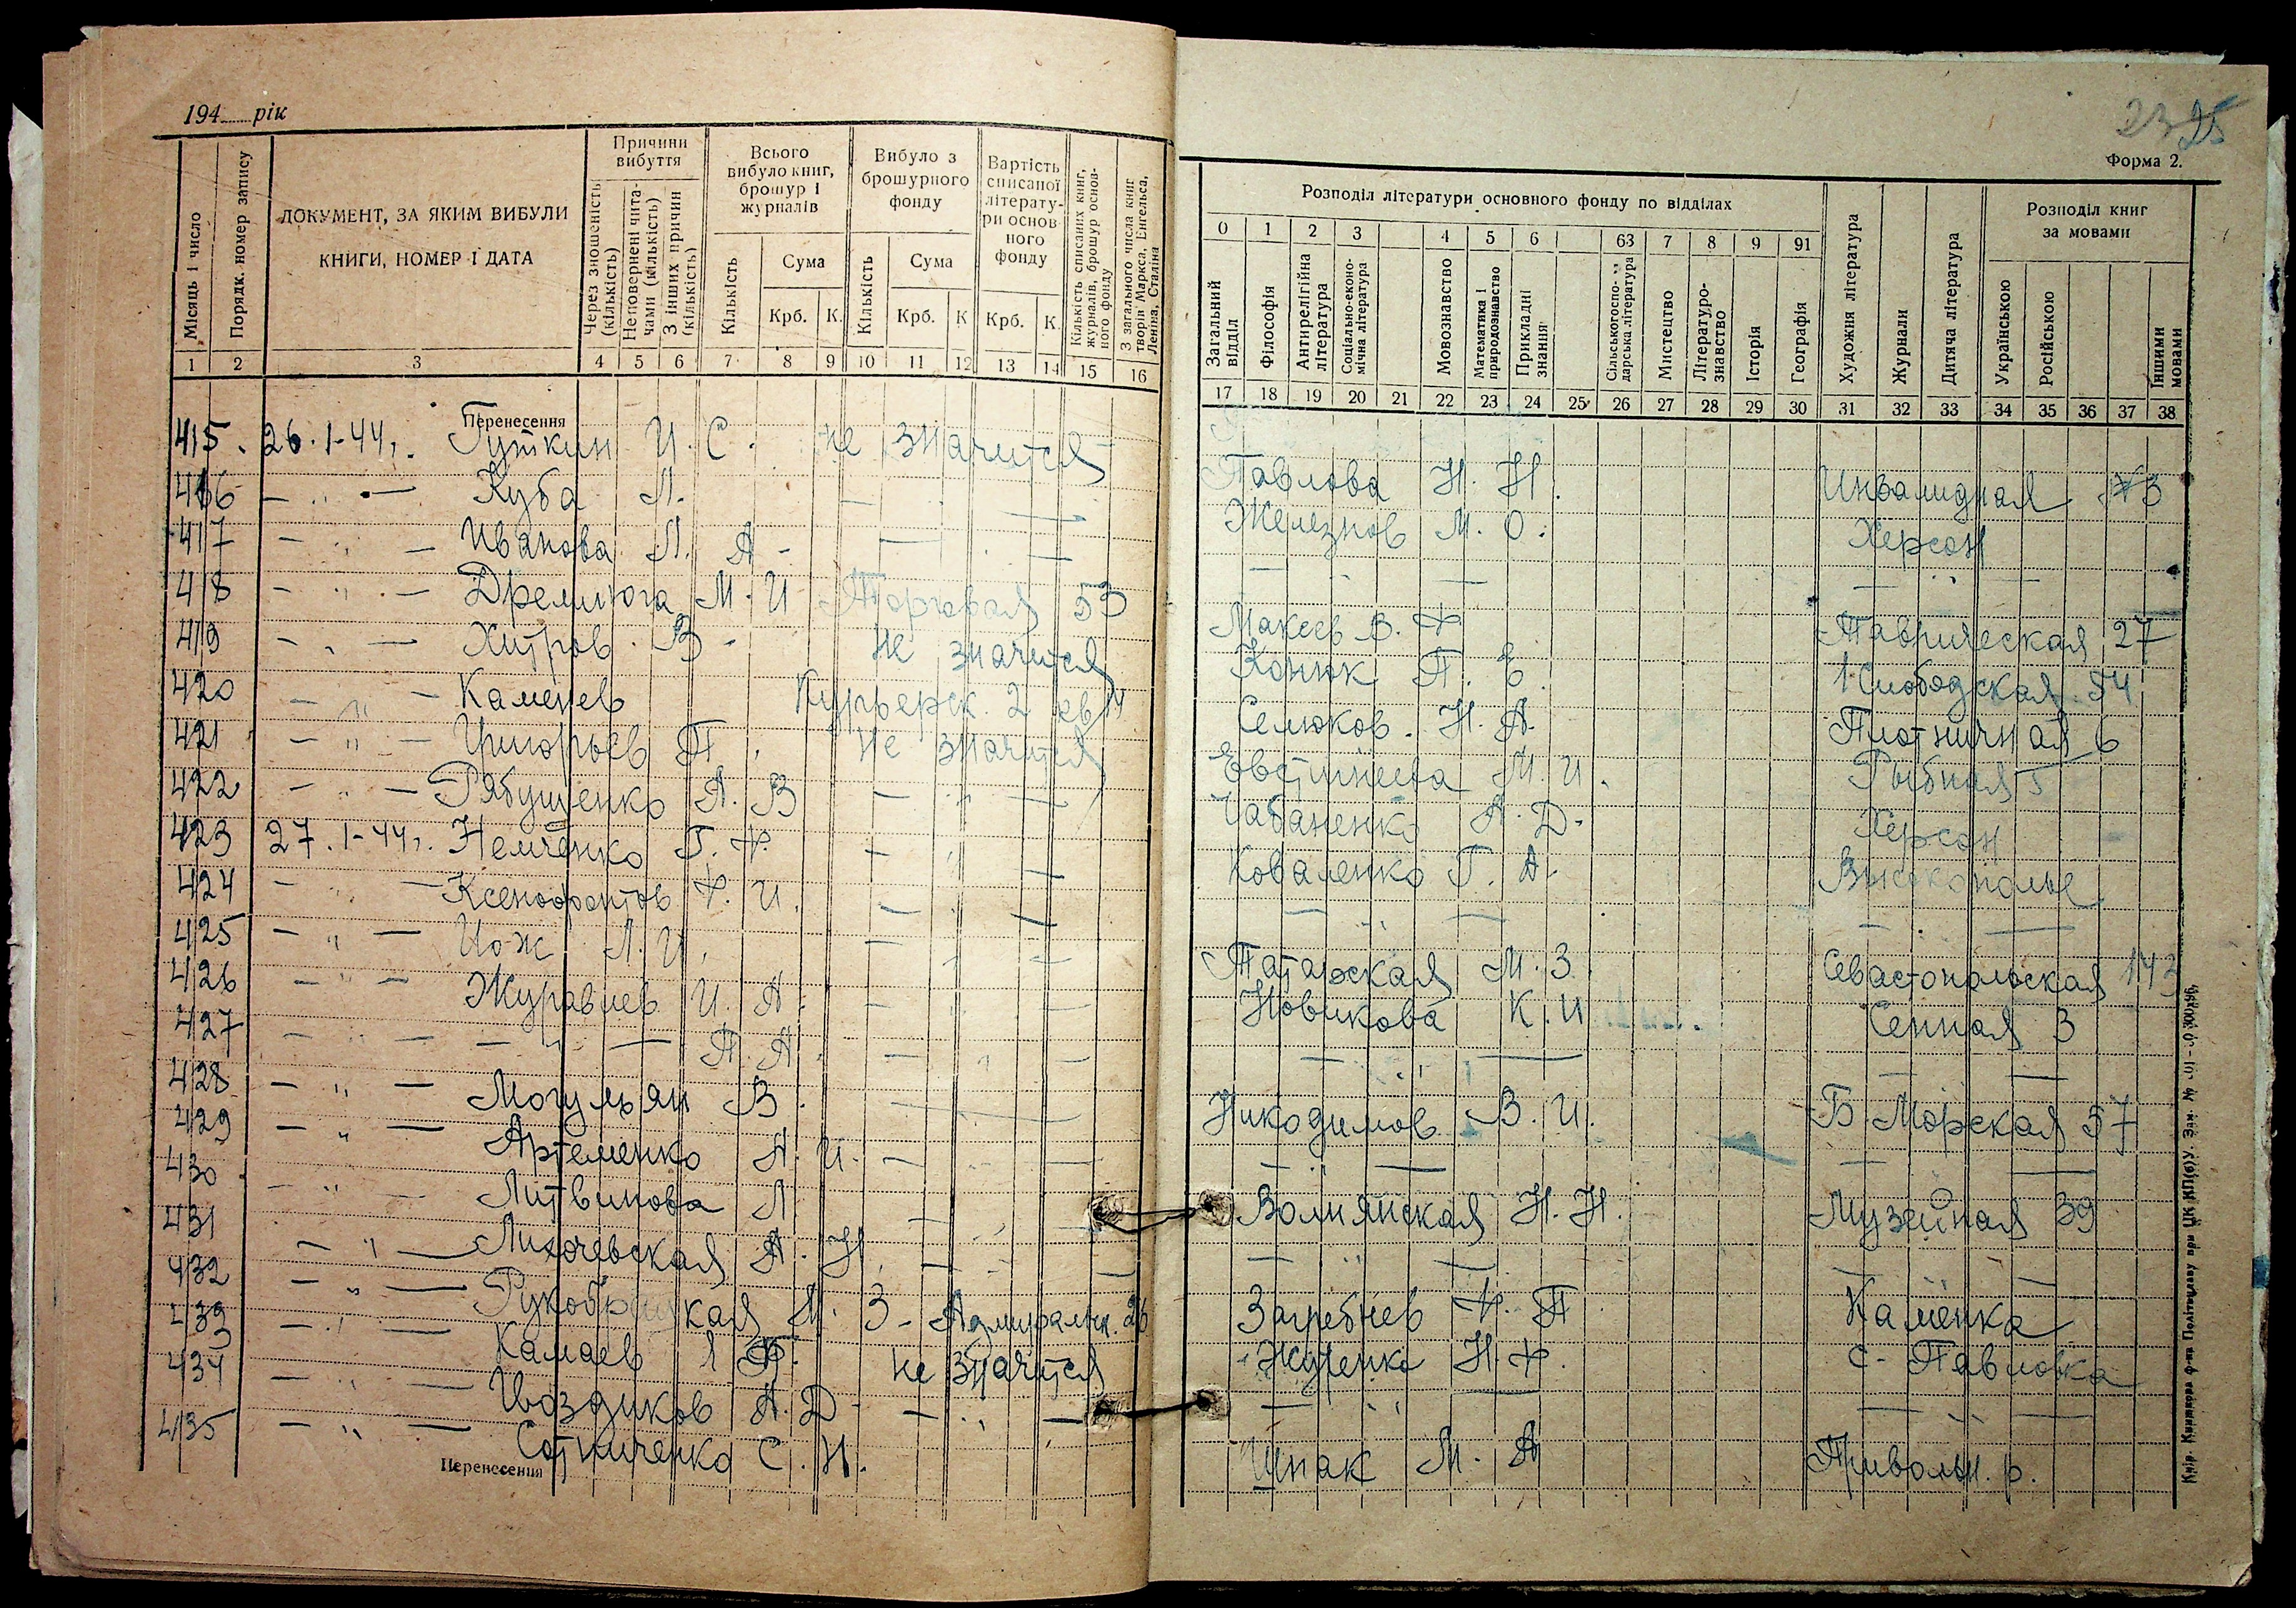 194 рік
23 25
Форма 2.
Місяць і число
Порядк. номер запису
ДОКУМЕНТ, ЗА ЯКИМ ВИБУЛИ
КНИГИ, НОМЕР І ДАТА
Причини вибуття
Через зношеність (кількість)
Неповернені читачами (кількість)
З інших причин (кількість)
Всього вибуло книг, брошур і журналів
Кількість
Сума
Крб. К.
Вибуло з брошурного фонду
Кількість
Сума
Крб. К
Вартість списаної літератури основного фонду
Крб. К.
Кількість списаних книг, журналів, брошур основного фонду
З загального числа книг творів Маркса, Енгельса, Леніна, Сталіна
1 2 3 4 5 6 7 8 9 10 11 12 13 14 15 16
Розподіл літератури основного фонду по відділах
0 1 2 3 4 5 6 63 7 8 9 91
Загальний відділ
Філософія
Антирелігійна література
Соціально-економічна література
Мовознавство
Математика і природознавство
Прикладні знання
Сільськогосподарська література
Мистецтво
Літературознавство
Історія
Географія
Художня література
Журнали
Дитяча література
Розподіл книг за мовами
Українською
Російською
Іншими мовами
17 18 19 20 21 22 23 24 25 26 27 28 29 30 31 32 33 34 35 36 37 38
Перенесення
415. 26.1-44г. Гуткин И. С. не значится
416 — " — Куба Л. — " — Павлова Н. Н. Инвалидная №3
417 — " — Иванова Л. А. — " — Железнов М. О. Херсон
418 — " — Дремлюга М. И Торговая 53 — " — — " —
419 — " — Хитров В. не значится Макеев В. Ф Таврическая 27
420 — " — Каменев Курьерск. 2 кв 14 Конюк П. Е. 1 Слободская 54
421 — " — Григорьев П. не значится Селюков. Н. А. Плотничная 6
422 — " — Рябушенко А. В — " — Евстигнеева М. И. Рыбная 5
423 27.1-44г. Немченко Г. Ф. — " — Чабаненко А. Д. Херсон
424 — " — Ксенофонтов Ф. И. — " — Коваленко Г. А. Высокополье
425 — " — Л. И. — " — — " — — " —
426 — " — Журавлев И. А. — " — Татарская М. З. Севастопольская 143
427 — " — — " — П. А. — " — Новикова К. И Сенная 3
428 — " — Могульян В. — — " — — —
429 — " — Артеменко А. И. — " — Никодимов В. И. Б Морская 57
430 — " — Литвинова Л. — " — — " — — —
431 — " — Лихачевская А. Н. — " — Волнянская Н. Н. Музейная 39
432 — " — М. З. Адмиральск. 26 — " — — " —
433 — " — Камаев не значится Загребнев Ф. П. Каменка
434 — " — Гвоздиков А. Д — " — Жученко Н. Ф. с. Павловка
435 — " — Сотниченко С. Н. " — " — — " —
Шпак М. А Привольн. р.
Перенесення